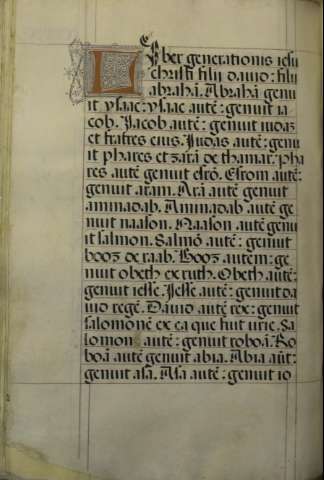 Liber generationis iesu
christi filii dauid : filii
abrahā. Abrahā genu
it ysaac : ysaac autē : genuit ia
cob. Jacob autē : genuit iudaz
et fratres eius. Judas autē : genu
it phares et zarā de thamar. Pha
res autē genuit esrō. Esrom autē :
genuit aram. Arā autē genuit
aminadab. Aminadab autē ge
nuit naason. Naason autē genu
it salmon. Salmō autē : genuit
booz de raab. Booz autem : ge
nuit obeth ex ruth. Obeth autē :
genuit iesse. Jesse autē : genuit da
uid regē. Dauid autē rex : genuit
salomonē ex ea que fuit urie. Sa
lomon autē : genuit roboā. Ro
boā autē genuit abia. Abia aūt :
genuit asa. Asa autē : genuit io